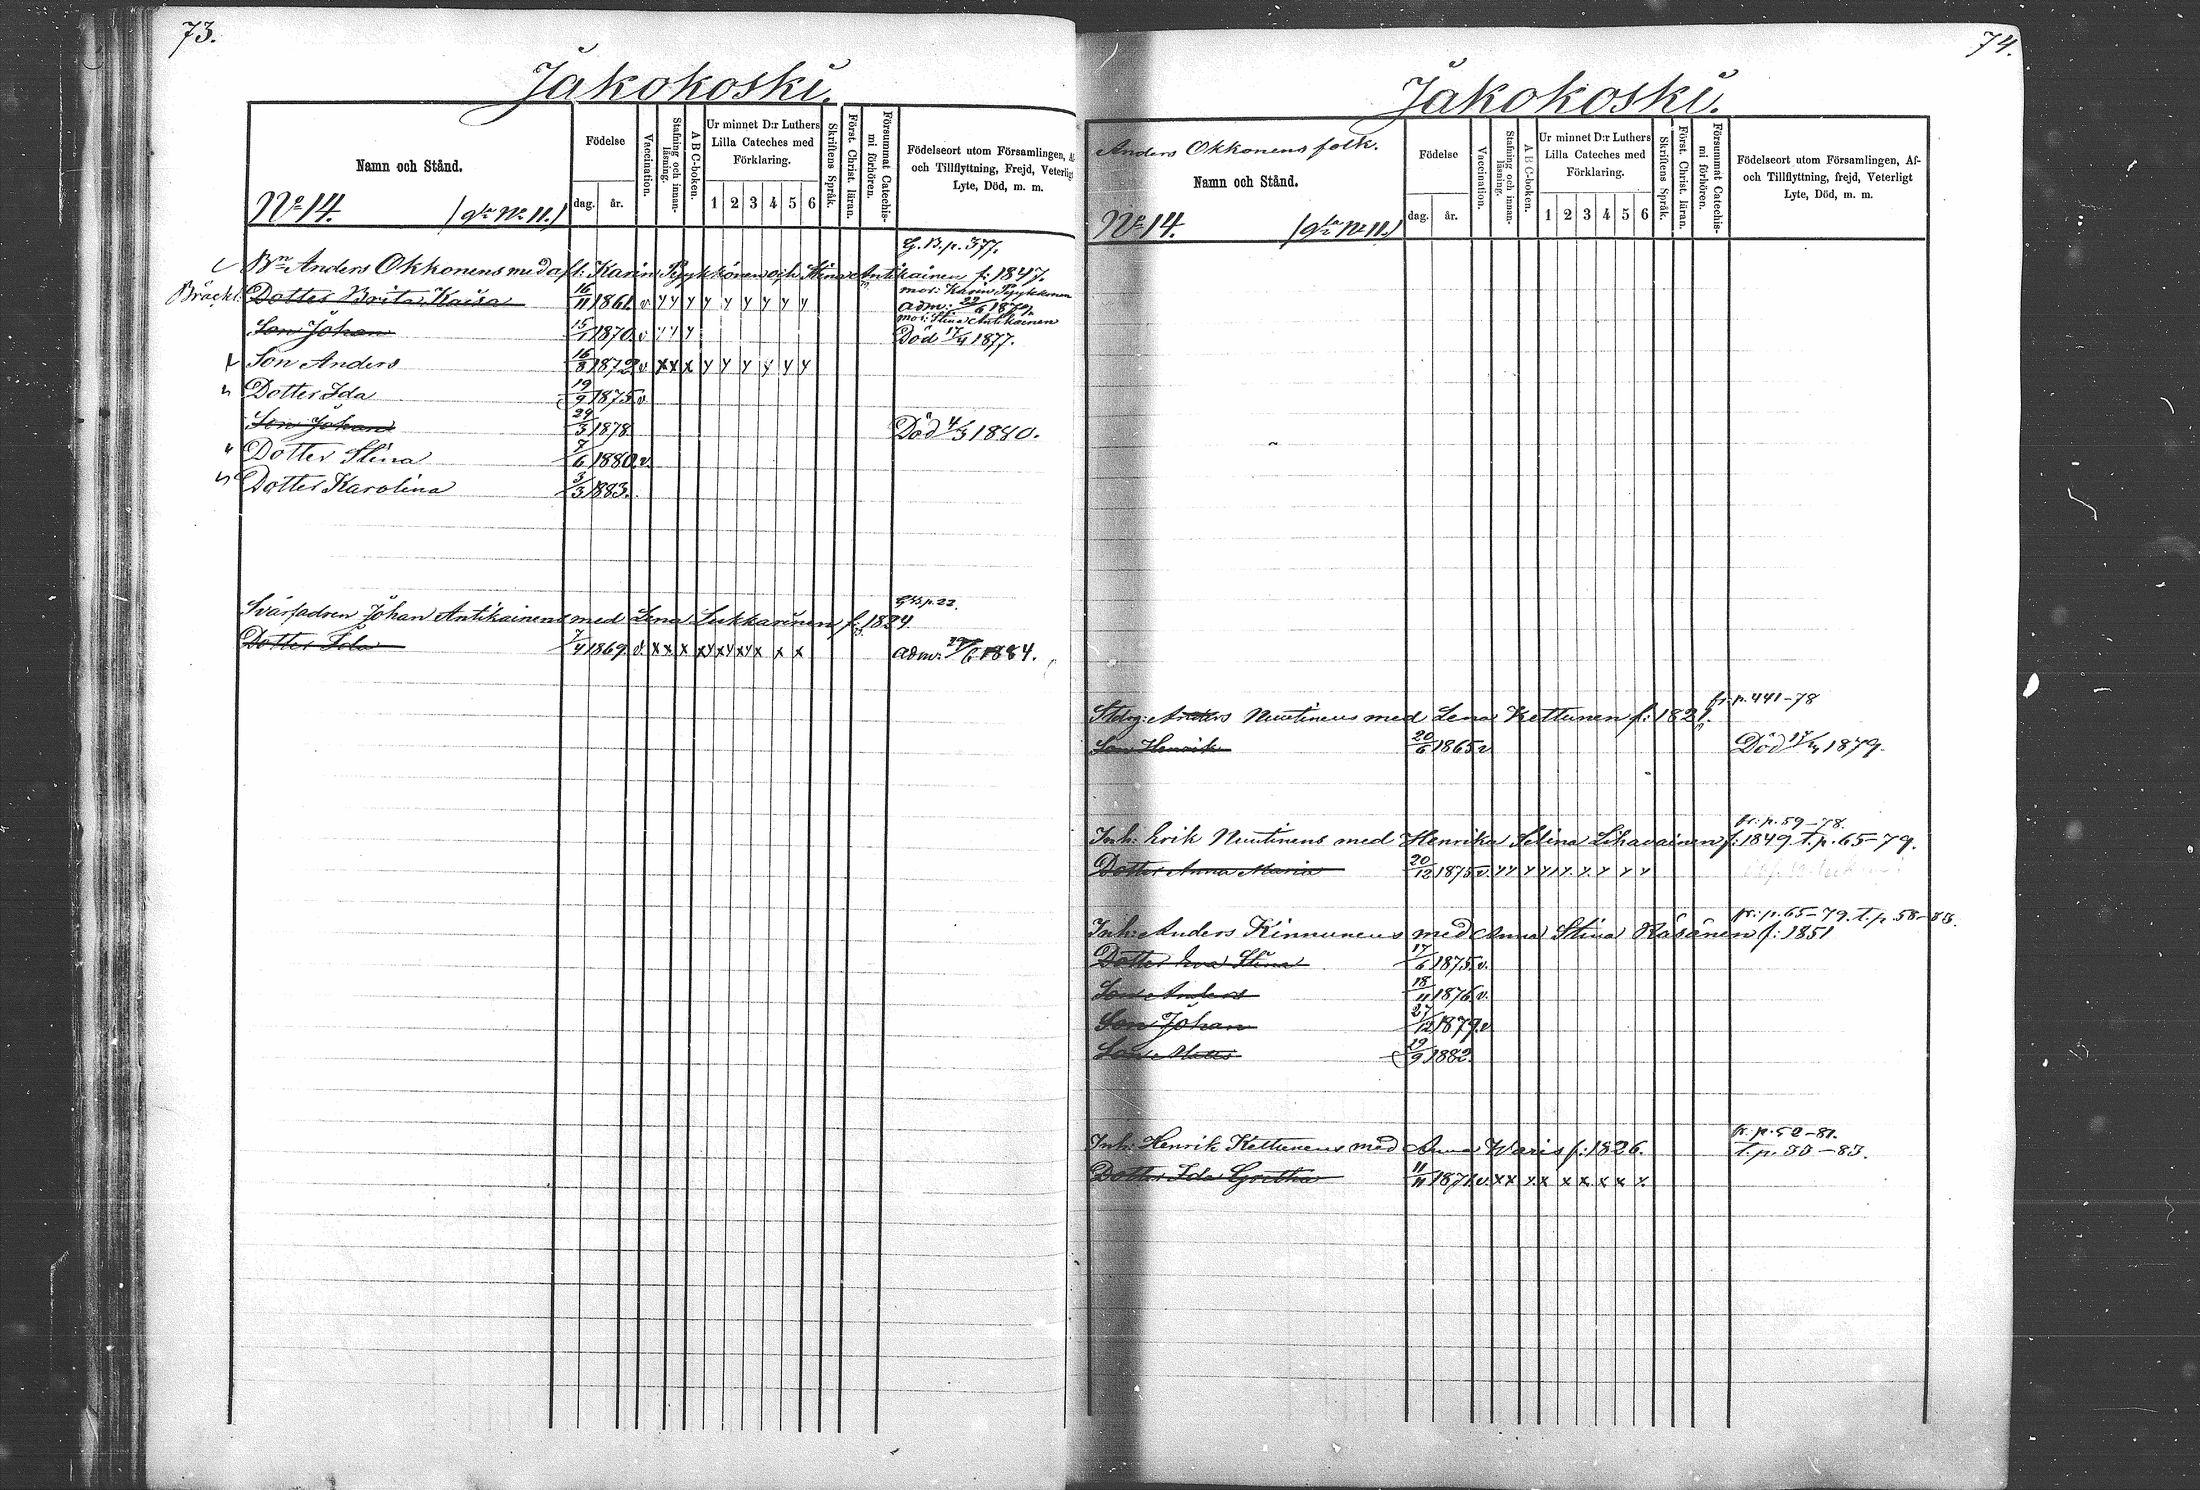 73.
Jakokoski.
Namn och Stånd.
Födelse
dag. år.
Vaccination.
Stafning och innanläsning.
A B C-boken.
Ur minnet D:r Luthers Lilla Cateches med Förklaring.
1 2 3 4 5 6
Skriftens Språk.
Först. Christ. läran.
Försummat Catechismi förhören.
Födelseort utom Församlingen, Af-
och Tillflyttning, Frejd, Veterligt
Lyte, Död, m. m.
No 14. (gla No 11.)
G. B. p. 377.
Bn Anders Okkonens med afl: Karin Pyykkönen och Stina Antikainen f: 1847.
mor: Karin Pyykkönen
Dotter Brita Kaisa 16/11 1861. v y y y y y y y y y adm: 22/6 1879.
mor: Stina Antikainen
Son Johan 15/1 1870. v y y y Död 17/4 1877.
Son Anders 16/8 1872 v x x x y y y y y y
Dotter Ida 19/9 1875 v.
Son Johan 29/3 1878 Död 4/3 1880.
Dotter Stina 7/6 1880. v.
Dotter Karolina 3/3 1883.
GB. p. 22.
Svärfadren Johan Antikainens med Lena Sukkarinen f: 1824
Dotter Ida 7/4 1869. v. x x x xy xy xy x x x adm: 1884.
74.
Jakokoski.
Anders Okkonens folk.
Namn och Stånd.
Födelse
dag. år.
Vaccination.
Stafning och innanläsning.
A B C-boken.
Ur minnet D:r Luthers Lilla Cateches med Förklaring.
1 2 3 4 5 6
Skriftens Språk.
Först. Christ. läran.
Försummat Catechismi förhören.
Födelseort utom Församlingen, Af-
och Tillflyttning, frejd, Veterligt
Lyte, Död, m. m.
No 14. (gla No 11.)
fr. p. 441-78
Stdrg: Anders Nuutinens med Lena Kettunen f: 1821.
Son Henrik 20/6 1865 v Död 17/4 1879.
fr. p. 59-78.
Inh: Erik Nuutinens med Henrika Selina Sihvonen f: 1849. t. p. 65-79.
Dotter Anna Maria 20/12 1875 v. y y y y y y y y y
fr: p. 65-79. t. p. 58-83.
Inh: Anders Kinnunens med Anna Stina Räsänen f: 1851
Dotter Eva Stina 17/6 1875 v.
Son Anders 18/11 1876 v.
Son Johan 27/12 1879. v
Son Matts 19/9 1882.
fr. p. 52-81.
Inh: Henrik Kettunens med Anna Waris f: 1826. t. p. 53-83.
Dotter Ida Gretha 11/11 1871. v. x x x x x x x x x